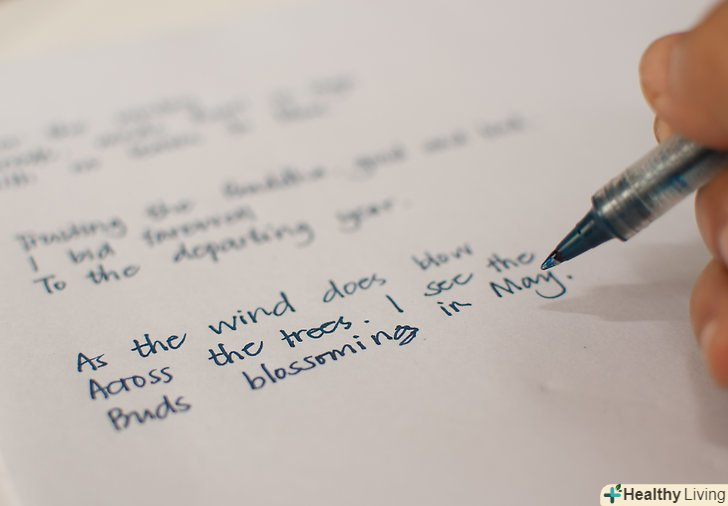 Trusting the Buddha, good and bad,
I bid farewell
To the departing year.
As the wind does blow
Across the trees. I see the
Buds blossoming in May.
Healthy Living